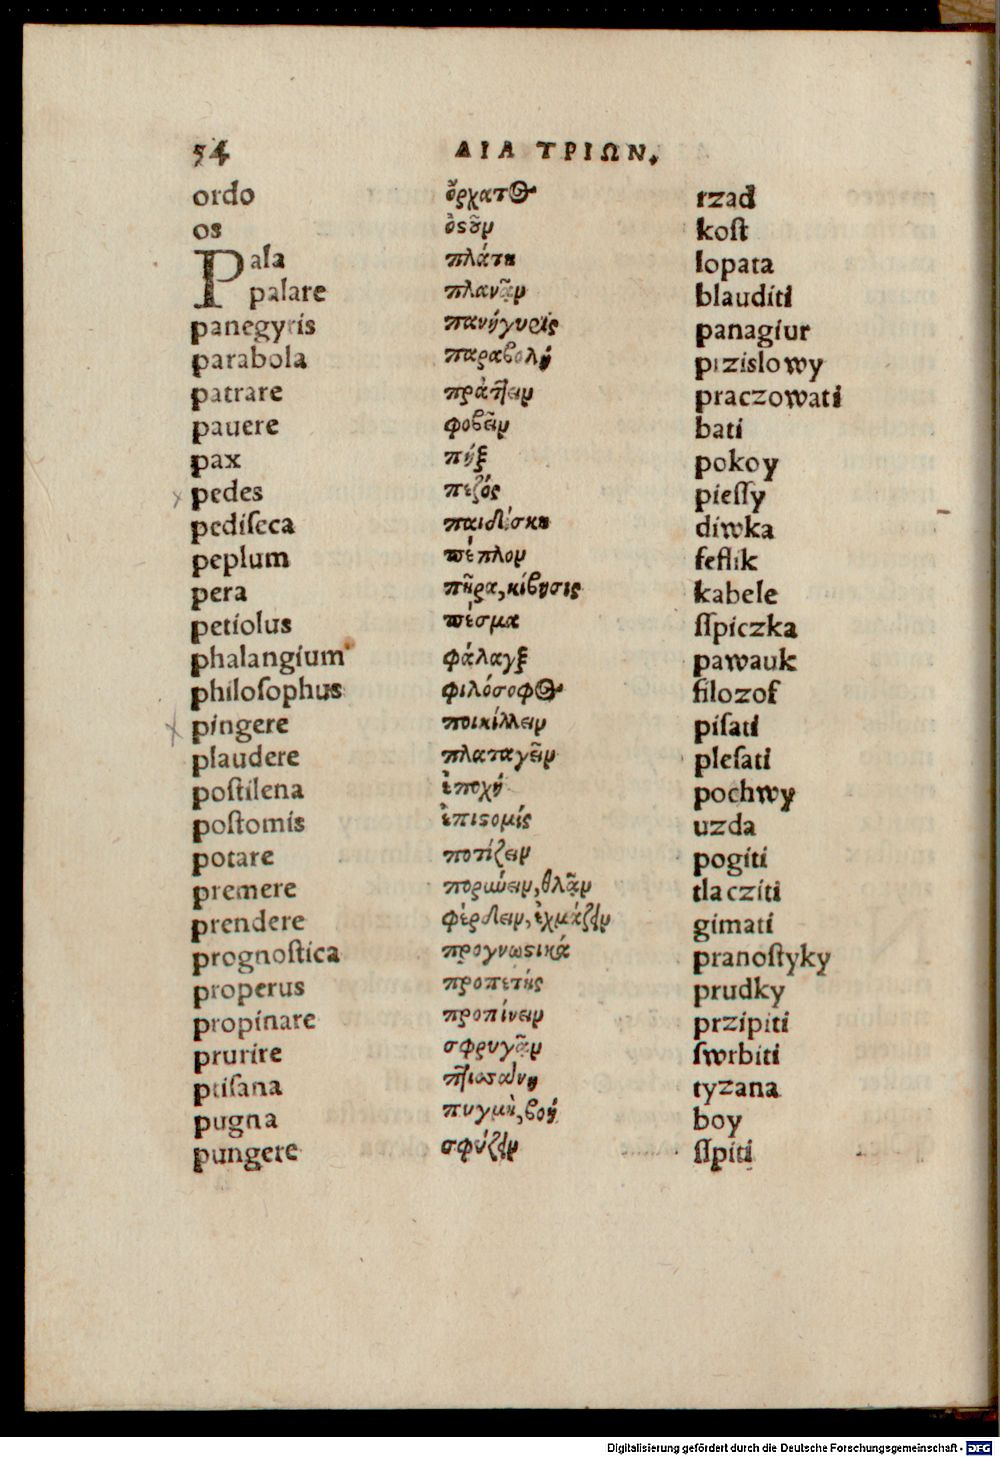 54 ΔΙΑ ΤΡΙΩΝ.
ordo ὄρχατος rzad
os ὀςοῦν koſt
Pala πλάτη lopata
palare πλανᾶν blauditi
panegyris πανήγυρις panagiur
parabola παραβολή przislowy
patrare πράττειν praczowati
pauere φοβεῖν bati
pax πήξ pokoy
pedes πεζός pieſſy
pediſeca παιδίσκη diwka
peplum πέπλον ſeſlik
pera πῆρα, κίβησις kabele
petiolus πέσμα ſſpiczka
phalangium φάλαγξ pawauk
philoſophus φιλόσοφος filozof
pingere ποικίλλειν piſati
plaudere παταγεῖν pleſati
poſtilena ἐποχή pochwy
poſtomis ἐπιςομίς uzda
potare ποτίζειν pogiti
premere θλᾶν tlacziti
prendere gimati
prognoſtica προγνωςικά pranoſtyky
properus προπετής prudky
propinare προπίνειν przipiti
prurire σφρυγᾶν ſwrbiti
ptiſana πτισάνη tyzana
pugna πυγμὴ, βοή boy
pungere σφύζειν ſſpiti
Digitalisierung gefördert durch die Deutsche Forschungsgemeinschaft - DFG